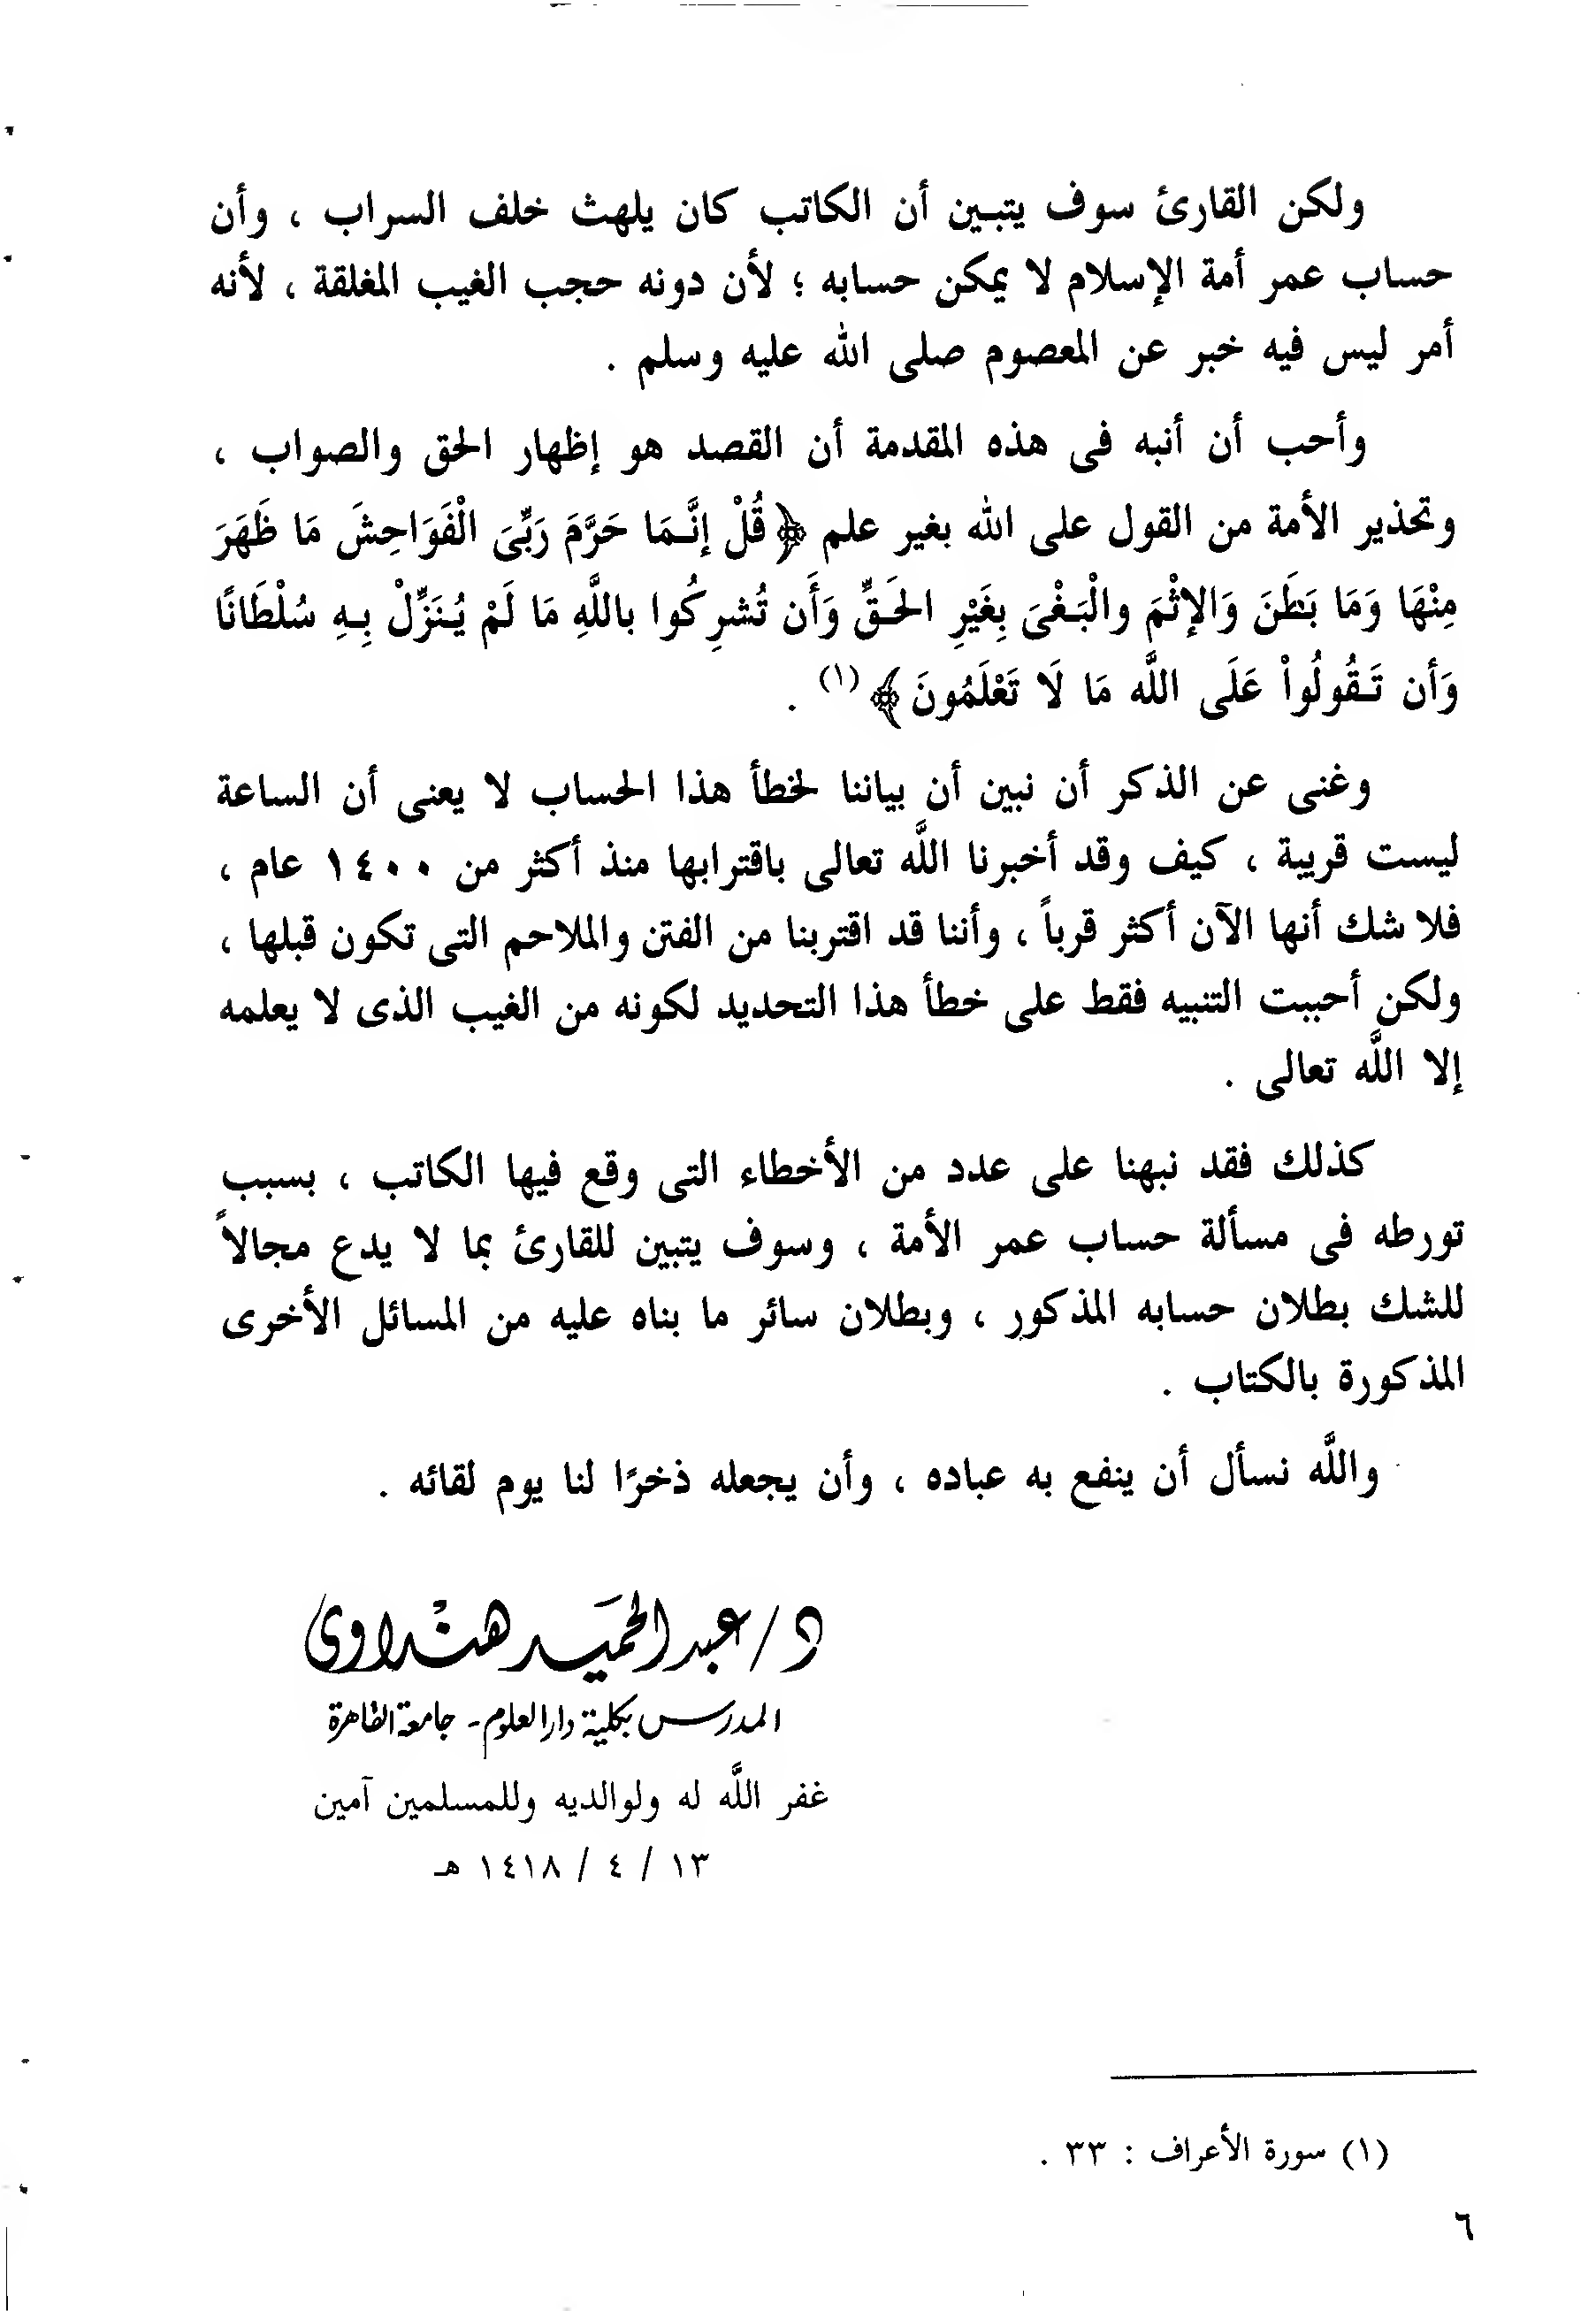 ولكن القارئ سوف يتبين أن الكاتب كان يلهث خلف السراب ، وأن
حساب عمر أمة الإسلام لا يمكن حسابه ؛ لأن دونه حجب الغيب المغلقة ، لأنه
أمر ليس فيه خبر عن المعصوم صلى الله عليه وسلم .
وأحب أن أنبه فى هذه المقدمة أن القصد هو إظهار الحق والصواب ،
وتحذير الأمة من القول على الله بغير علم ﴿قُلْ إِنَّمَا حَرَّمَ رَبِّىَ الْفَوَاحِشَ مَا ظَهَرَ
مِنْهَا وَمَا بَطَنَ وَالإِثْمَ والْبَغْىَ بِغَيْرِ الحَقِّ وَأَن تُشرِكُوا باللَّهِ مَا لَمْ يُنَزِّلْ بِهِ سُلْطَانًا
وَأَن تَقُولُواْ عَلَى اللَّه مَا لَا تَعْلَمُونَ﴾ (١) .
وغنى عن الذكر أن نبين أن بياننا لخطأ هذا الحساب لا يعنى أن الساعة
ليست قريبة ، كيف وقد أخبرنا اللَّه تعالى باقترابها منذ أكثر من ١٤٠٠ عام ،
فلا شك أنها الآن أكثر قرباً ، وأننا قد اقتربنا من الفتن والملاحم التى تكون قبلها ،
ولكن أحببت التنبيه فقط على خطأ هذا التحديد لكونه من الغيب الذى لا يعلمه
إلا اللَّه تعالى .
كذلك فقد نبهنا على عدد من الأخطاء التى وقع فيها الكاتب ، بسبب
تورطه فى مسألة حساب عمر الأمة ، وسوف يتبين للقارئ بما لا يدع مجالاً
للشك بطلان حسابه المذكور ، وبطلان سائر ما بناه عليه من المسائل الأخرى
المذكورة بالكتاب .
واللَّه نسأل أن ينفع به عباده ، وأن يجعله ذخرًا لنا يوم لقائه .
د/عبد الحميد هنداوى
المدرس بكلية دار العلوم - جامعة القاهرة
غفر اللَّه له ولوالديه وللمسلمين آمين
١٣ / ٤ / ١٤١٨ هـ
(١) سورة الأعراف : ٣٣ .
٦